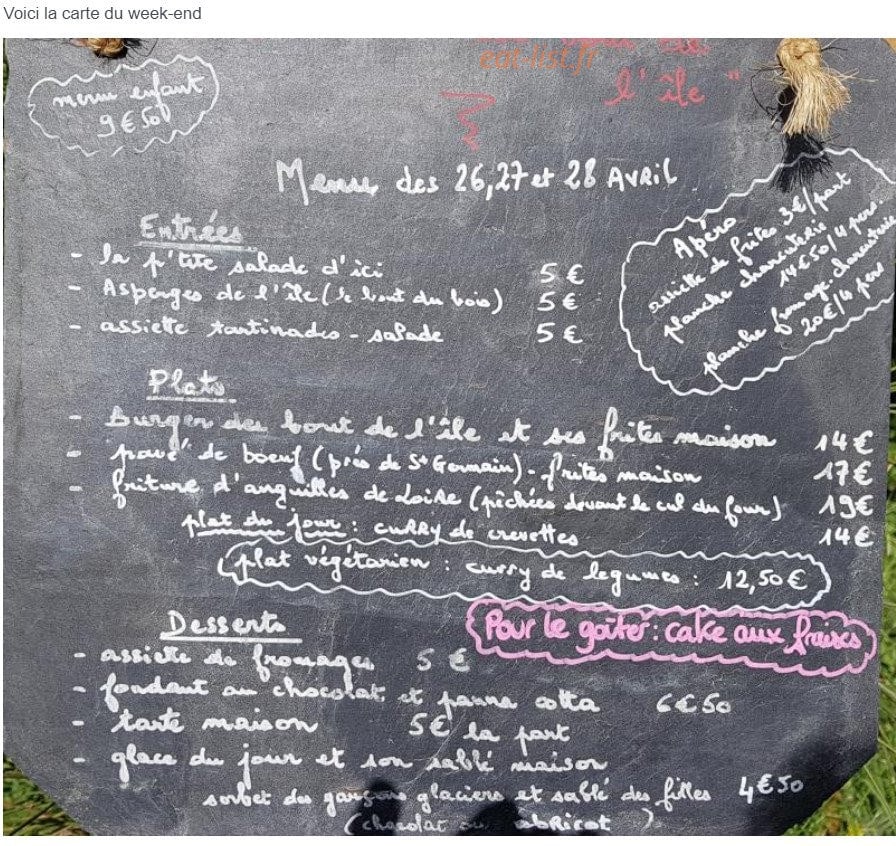 Voici la carte du week-end
eat-list.fr
l'île "
menu enfant
9€50
Menu des 26,27 et 28 AVRIL
Apéro
assiette de frites 3€/part
planche charcuterie
14€50/4 pers.
planche fromage-charcuterie
20€/4 pers
Entrées
- la p'tite salade d'ici 5€
- Asperges de l'île (le bout du bois) 5€
- assiette tartinades - salade 5€
Plats
- Burger du bout de l'île et ses frites maison 14€
- pavé de boeuf (près de St Germain) - frites maison 17€
- friture d'anguilles de Loire (pêchées devant le cul du four) 19€
plat du jour : cuRRy de crevettes 14€
plat végétarien : curry de legumes : 12,50€
Desserts
Pour le goûter : cake aux fraises
- assiette de fromages 5€
- fondant au chocolat et panna cotta 6€50
- tarte maison 5€ la part
- glace du jour et son sablé maison
sorbet des garçons glaciers et sablé des filles 4€50
(chocolat ou abRicot)